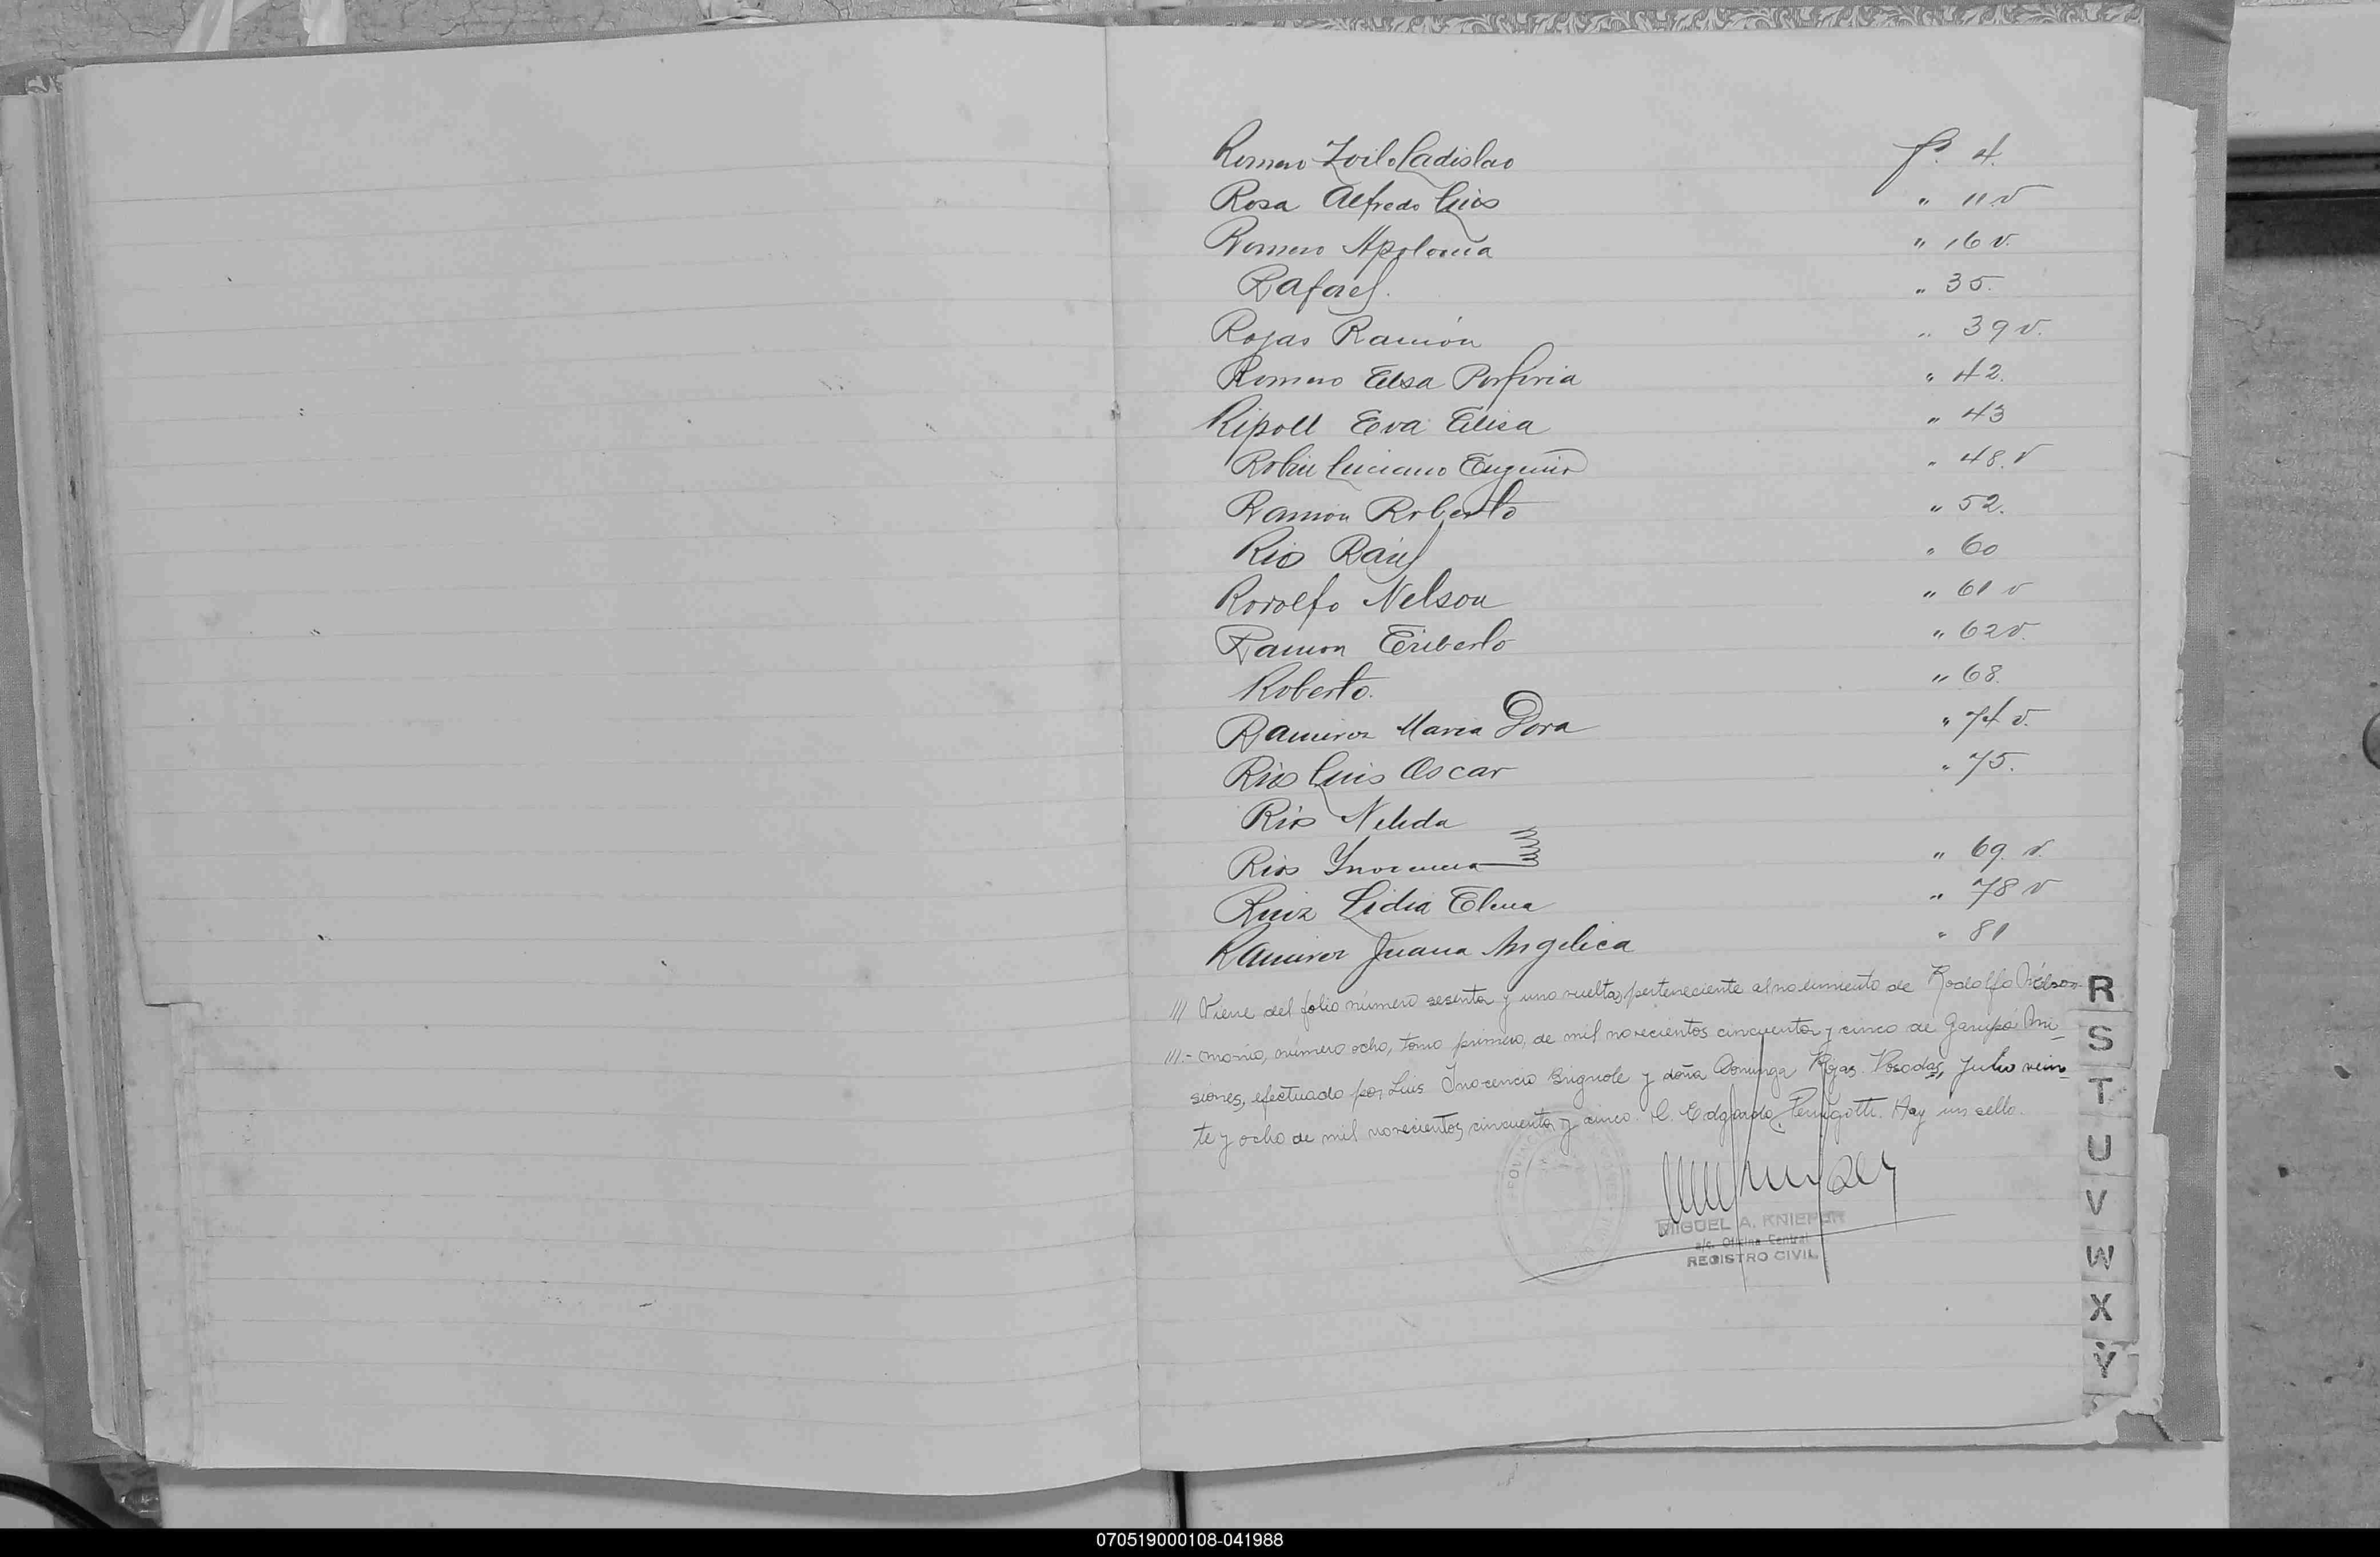 Romero Zoilo Ladislao fº 4.
Rosa Alfredo Luis " 11 v
Romero Apolonia " 16 v.
Rafael. " 35.
Rojas Ramón " 39 v.
Romero Elsa Porfiria " 42.
Ripoll Eva Elisa " 43
Robin Luciano Eugenio " 48. v
Ramón Roberto " 52.
Rio Raúl " 60
Rodolfo Nelson " 61 v
Ramon Eriberto " 62 v.
Roberto. " 68.
Ramirez Maria Dora " 74 v.
Rios Luis Oscar " 75.
Rios Nelida
Rios Inocencia " 69. v.
Ruiz Lidia Elena " 78 v
Ramirez Juana Angelica " 81
/// Viene del folio número sesenta y uno vuelta, perteneciente al nacimiento de Rodolfo Nélson.
///.- monio, número ocho, tomo primero, de mil novecientos cincuenta y cinco de Garupá Mi-
siones, efectuado por Luis Inocencio Brignole y doña Dominga Rojas. Posadas, Julio vein-
te y ocho de mil novecientos cincuenta y cinco. Edgardo Perugotti. Hay un sello.
MIGUEL A. KNIEPER
a/c. Oficina Central
REGISTRO CIVIL
R
S
T
U
V
W
X
Y
070519000108-041988